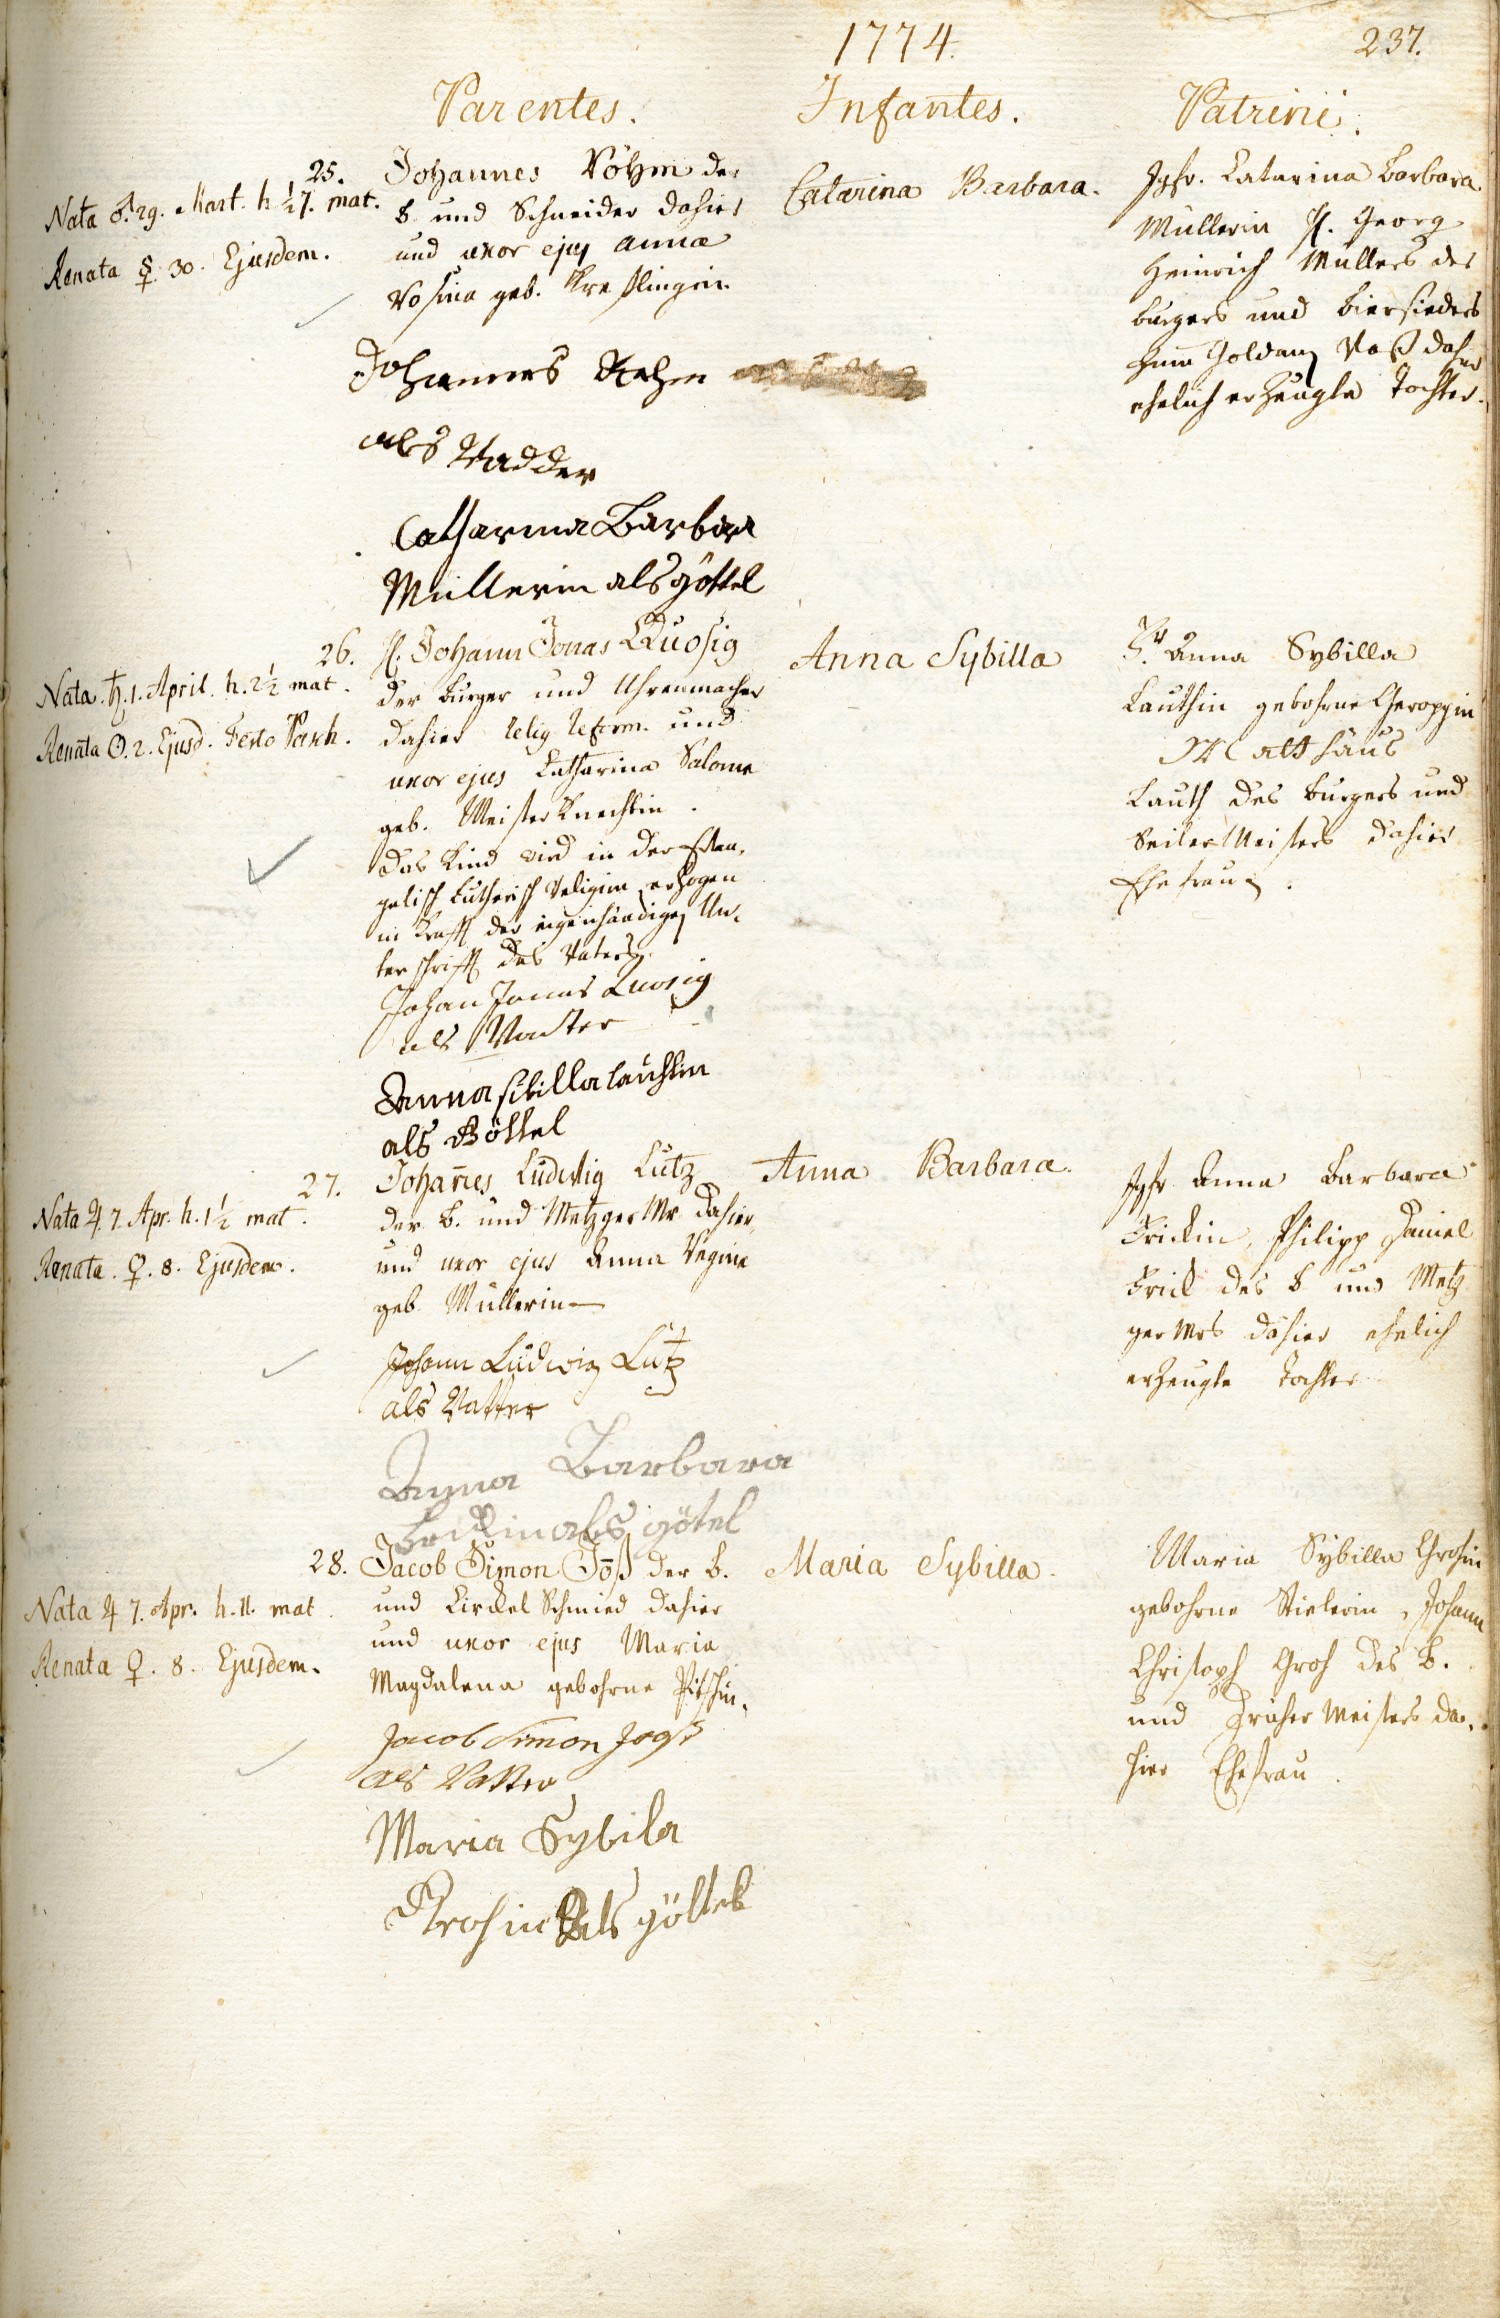 1774.
237.
Parentes.
Infantes.
Patrini.
25.
Nata ♂. 29. Mart. h ½ 7. mat.
Renata ☿. 30. Ejusdem.
Johannes Röhm der
B. und Schneider dahier
und uxor ejus Anna
Rosina geb. Kreßlingin.
Johannes Rehm
als Vadder
Catharina Barbara
Müllerin als göttel
Catarina Barbara.
Jgfr. Catarina Barbara
Müllerin H. Georg
Heinrich Müllers des
burgers und biersieders
zum Goldenen Roß dahier
ehelich erzeugte Tochter.
26.
Nata ♄. 1. April. h. 2½ mat.
Renata ☉. 2. Ejusd. Festo Pasch.
H. Johann Jonas Quosig
der burger und Uhrenmacher
dahier relig reform. und
uxor ejus Catharina Salome
geb. Meisterknechtin.
Das Kind wird in der Evan-
gelisch Lutherisch Religion erzogen
in Krafft der eigenhändigen Un-
terschrifft des Vaters.
Johan Jonas Quosig
als Vadter
Anna sibilla lauthin
als Göttel
Anna Sybilla
Fr. Anna Sybilla
Lauthin gebohrne
Mattháus
Lauth des burgers und
Seiler Meisters dahier
Ehefrau.
27.
Nata ♃. 7. Apr. h. 1½ mat.
Renata. ♀. 8. Ejusdem.
Joha&#772;nes Ludwig Lutz
der B. und Metzger Mr. dahier,
und uxor ejus Anna Regine
geb. Müllerin
Johann Ludwig Lutz
als Vatter
Anna Barbara
als götel
Anna Barbara.
Jgfr Anna Barbara
Frickin, Philipp Daniel
Frick des B und Metz
ger Mrs dahier ehelich
erzeugte Tochter
28.
Nata ♃ 7. Apr. h. 11. mat.
Renata ♀. 8. Ejusdem.
Jacob Simon Joß der B.
und Circkel Schmied dahier
und uxor ejus Maria
Magdalena gebohrne Pitschin.
Jacob Simon Joß
als Vatter
Maria Sybila
Krohin als göttel
Maria Sybilla.
Maria Sybilla Grohin
gebohrne Stielerin, Johann
Christoph Groh des B.
und Meisters da-
hier Ehefrau.